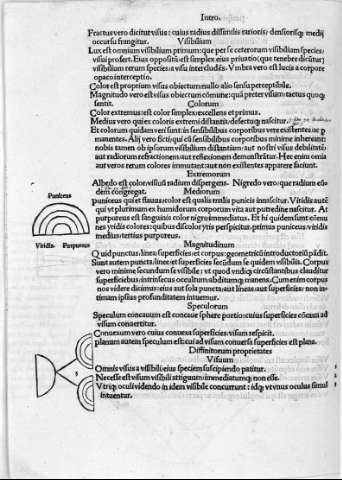 Intro.
Fractus vero dicitur visus: cuius radius diffensis rationis: densiorisq; medij
occursu frangitur.
Visibilium
Lux est omnium visibilium primum: que per se ceterorum visibilium species
visui profert. Eius opposita est simplex eius privatio: que tenebre dicitur:
visibilium rerum species a visu interclude̅s. Vmbra vero est lucis a corpore
opaco interceptio.
Color est proprium visus obiectum: nullo alio sensu perceptibile.
Magnitudo vero est visus obiectum co̅mune: qua preter visum: tactus quoq;
sentit.
Colorum
Color extremus: est color simplex: excellens et primus.
Medius vero quiex coloris extremi distantis defectuq; nascitur.
Et colorum quidam veri sunt: in sensibilibus corporibus vere existentes ac p
manentes. Alij vero ficti: qui cu̅ sensibilibus corporibus minime inherent:
nobis tamen ob ipsorum visibilium distantiam: aut nostri visus debilitate̅:
aut radiorum refractionem: aut reflexionem demonstra̅tur. Hec enim omia
aut veros rerum colores immutant: aut non existentes apparere faciunt.
Extremorum
Albedo est color: visus radium dispergens. Nigredo vero: que radium eu̅
dem congregat.
Mediorum
Puniceus
puniceus qui et flauus: color est qualis malis punicis innascitur. Viridis aute̅
qui vt plurimum ex humidorum corporum vita aut putredine nascitur. At
purpureus est sanguinis color nigro immediatus. Et hi quidem sunt om̅ni
nes yridis colores: quibus discolor yris perspicitur. primus puniceus: viridis
medius: tertius purpureus.
Viridis Purpureus
Magnitudinum
Quid punctus: linea: superficies: et corpus: geometricu̅ introductoriu̅ pa̅dit.
Sunt autem puncta: linee: et superficies secundum se quidem visibiles. Corpus
vero minime secundum se visibile: vt quod vndiq; circu̅stantibus clauditur
superficiebus: intrinsecus occultum: subditumq; manens. Cum enim corpus
nos videre dicimus: eius aut sola puncta: aut lineas: aut superficies: non in
timam ipsius profunditatem intuemur.
Speculorum
Speculum concauum est concaue sphere portio: cuius superficies co̅caua ad
visum conuertitur.
Conuexum vero cuius conuexa superficies: visum respicit.
planum autem speculum est: cui ad visum conuersa superficies est plana.
Diffinitorum proprietates
Visuum
Omnis visus a visibili: eius speciem suscipiendo patitur.
Necesse est visum visibili: contiguum: immediatumq; non esse.
Vtriq; oculi videndo in idem visibile concurrunt: idq; vt vnus oculus simul
intuentur.